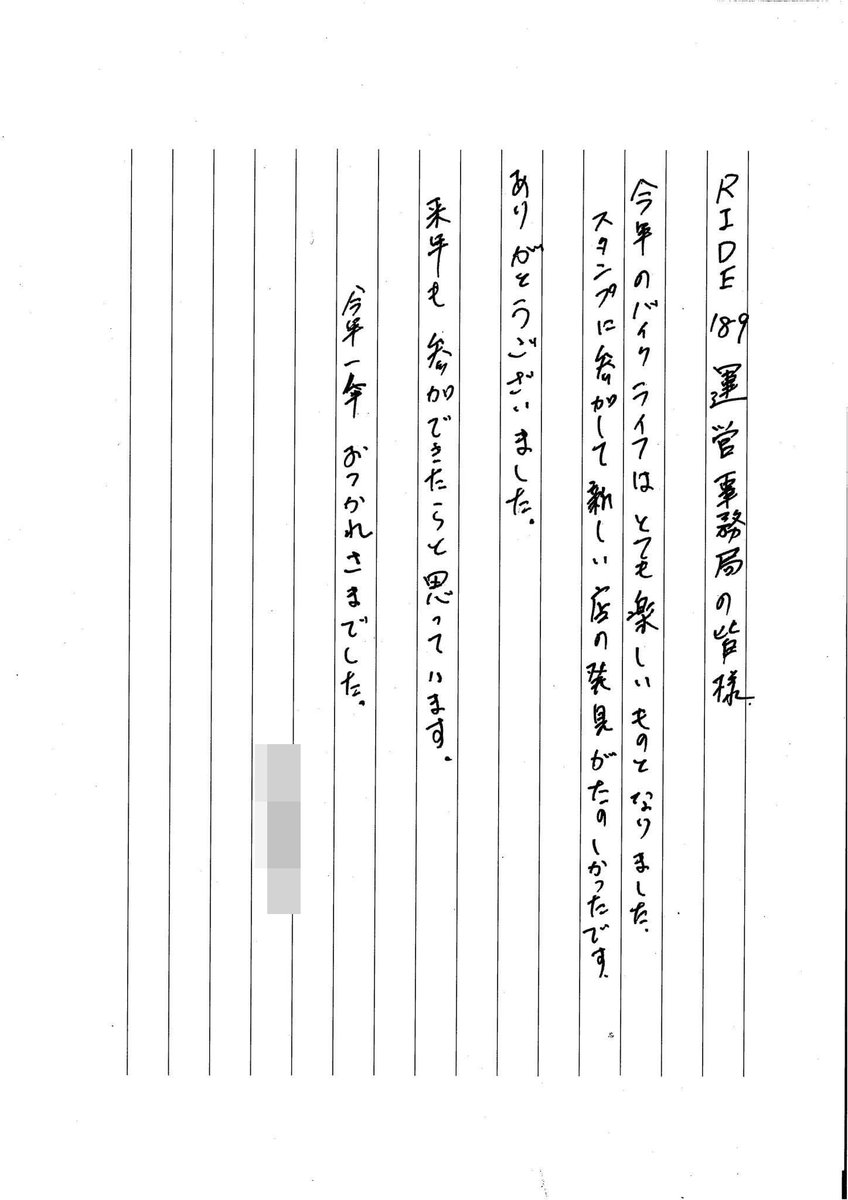 RIDE 189 運営事務局の皆様
今年のバイクライフはとても楽しいものとなりました。
スタンプに参加して新しい店の発見がたのしかったです。
ありがとうございました。
来年も参加できたらと思っています。
今年一年おつかれさまでした。